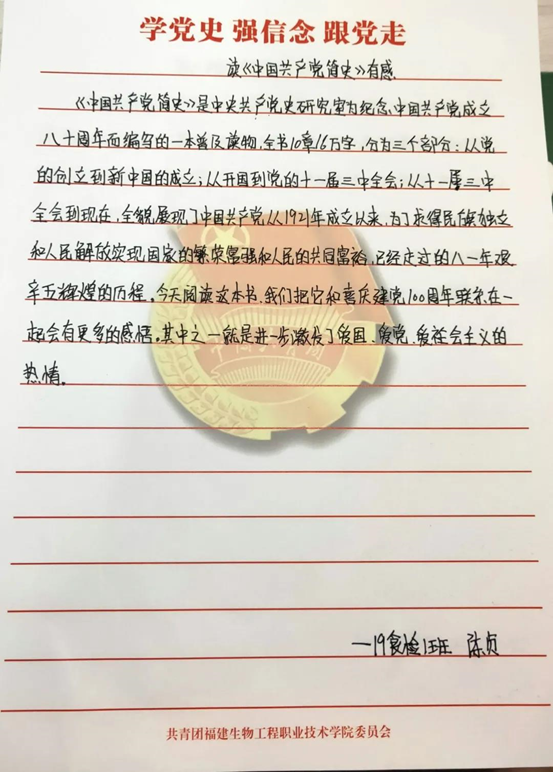 学党史 强信念 跟党走
读《中国共产党简史》有感
《中国共产党简史》是中央共产党史研究室为纪念中国共产党成立
八十周年而编写的一本普及读物,全书10章16万字,分为三个部分:从党
的创立到新中国的成立;从开国到党的十一届三中全会;从十一届三中
全会到现在,全貌展现了中国共产党从1921年成立以来,为了求得民族独立
和人民解放实现国家的繁荣富强和人民的共同富裕,已经走过的八一年艰
辛而辉煌的历程。今天阅读这本书,我们把它和喜庆建党100周年联系在一
起会有更多的感悟。其中之一就是进一步激发了爱国、爱党、爱社会主义的
热情。
—19食检1班 陈贞
共青团福建生物工程职业技术学院委员会